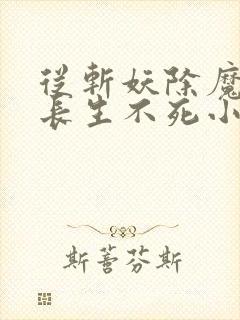 從斬妖除魔
長生不死小
斯蕾芬斯